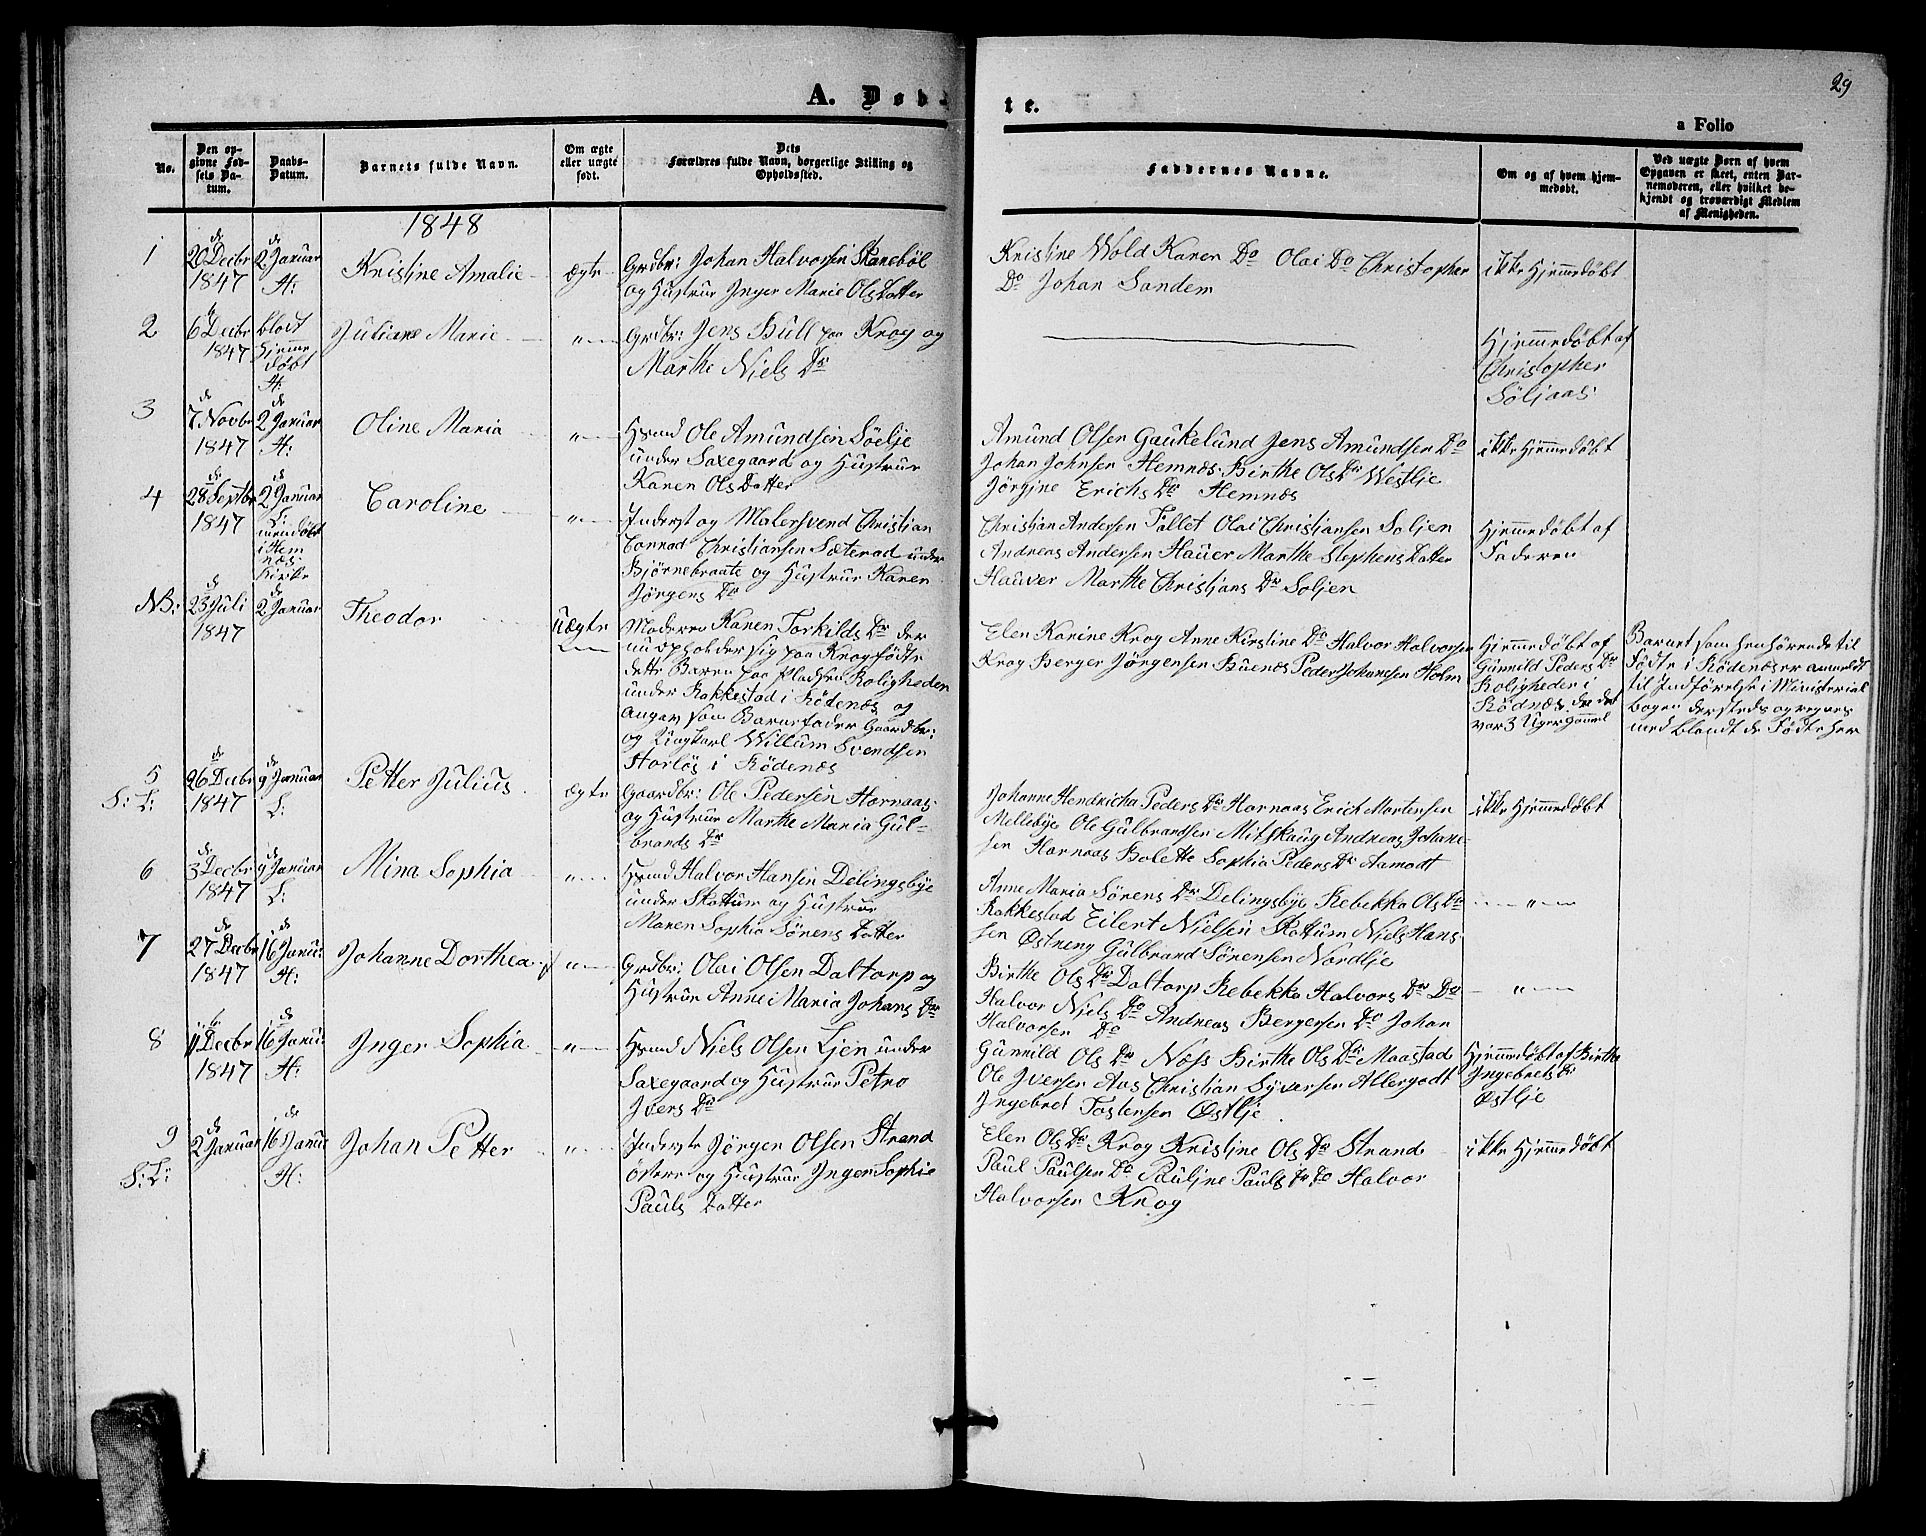 29
A. Døb-
te.
a Folio
No.
Den op-
givne Fød-
sels Da-
tum.
Daabs-
Datum.
Barnets fulde Navn.
Om ægte
eller uægte
født.
Dets
Forældres fulde Navn, borgerlige Stilling og
Opholdssted.
Faddernes Navne.
Om og af hvem hjem-
medøbt.
Ved uægte Børn af hvem
Opgaven er skeet, enten Bar-
nemoderen, eller hvilket be-
kjendt og troværdigt Medlem
af Menigheden.
1848
1
de
20 Decbr
1847
de
2 Januar
H:
Kristine Amalie
Ægte
Grdbr: Johan Halvorsen Skanebøl
og Hustrue Inger Marie Olsdatter
Kristine Wold Karen Do Olai Do Christopher
Do Johan Sandem
ikke Hjemmedøbt
2
6 Decbr
1847
blot
hjemme
døbt
H:
Juliane Marie
"
Grdbr: Jens Bull paa Krog og
Marthe Niels Dr
Hjemmedøbt af
Christopher
Søljaas
3
de
7 Novbr
1847
de
2 Januar
H:
Oline Maria
"
Hsmd Ole Amundsen Søelje
under Saxegaard og Hustrue
Karen Olsdatter
Amund Olsen Gaukelund Jens Amundsen Do
Johan Johnsen Hemnæs Birthe Ols Dr Westlie
Jørgine Erichs Dr Hemnæs
ikke Hjemmedøbt
4
de
28 Septbr
1847
de
2 Januar
L:
men døbt
i Hem
næs
Kirke
Caroline
"
Inderst og Malersvend Christian
Conrad Christiansen Sæterød under
Bjørnebraate og Hustrue Karen
Jørgens Dr
Christian Andersen Tallet Olai Christiansen Soljen
Andreas Andersen Hauer Marthe Stephensdatter
Hauver Marthe Christians Dr Soljen
Hjemmedøbt af
Faderen
NB:
de
23 Juli
1847
de
2 Januar
Theodor
Uægte
Moderen Karen Torkilds Dr der
nu opholder sig paa Krog fødte
dette Barn paa Pladsen Roligheden
under Rakkestad i Rødenæs og
angav som Barnefader Gaardbr:
og Ungkarl Willum Svendsen
Storløs i Rødenæs
Elen Karine Krog Anne Kirstine Do Halvor Halvorsen
Krog Berger Jørgensen Buenæs Peder Johansen Holm
Hjemmedøbt af
Gunnild Peders Dr
Roligheden i
Rødnæs, da det
var 3 Uger gammel
Barnet som henhørende til
Fødte i Rødenæs er anmeldt
til Indførelse i Ministerial
bogen dersteds og regnes
med blandt de Fødte her
5
S: L:
de
26 Decbr
1847
de
9 Januar
L:
Petter Julius
Ægte
Gaardbr: Ole Pedersen Hornaas
og Hustrue Marthe Maria Gul-
brands Dr
Johanne Hendricha Peders Dr Hornaas Erich Mortensen
Mellebye Ole Gulbrandsen Mitskaug Andreas Johane
sen Hornaas Bolette Sophia Peders Dr Aamodt
ikke Hjemmedøbt
6
de
3 Decbr
1847
de
9 Januar
L:
Mina Sophia
"
Hsmd Halvor Hansen Delingsbye
under Skottum og Hustrue
Maren Sophia Sørens Datter
Anne Maria Sørens Dr Delingsbye Rebekka Ols Dr
Rakkestad Eilert Nielsen Skottum Niels Han-
sen Østneng Gulbrand Sørensen Nordlie
"
7
de
27 Decbr
1847
de
16 Janu:
H:
Johanne Dorthea
"
Grdbr: Olai Olsen Daltorp og
Hustrue Anne Maria Johans Dr
Birthe Ols Dr Daltorp Rebekka Halvors Dr Do
Halvor Niels Do Andreas Bergersen Do Johan
Halvorsen Do
"
8
11 Decbr
1847
de
16 Janu:
H:
Inger Sophia
"
Hsmd Niels Olsen Lien under
Saxegaard og Hustrue Petro
Ivers Dr
Gunnild Ols Dr Næss Birthe Ols Dr Maastad
Ole Iversen Aas Christian Syversen Allergodt
Ingebret Tostensen Østlie
Hjemmedøbt af Birthe
Ingebrets Dr
Østlie
9
S: L:
de
2 Januar
de
16 Janu:
H:
Johan Petter
"
Inderste Jørgen Olsen Strand
Østre og Hustrue Inger Sophie
Pauls Datter
Elen Ols Dr Krog Kristine Ols Dr Strand
Paul Paulsen Do Pauline Pauls Dr Do Halvor
Halvorsen Krog
ikke Hjemmedøbt